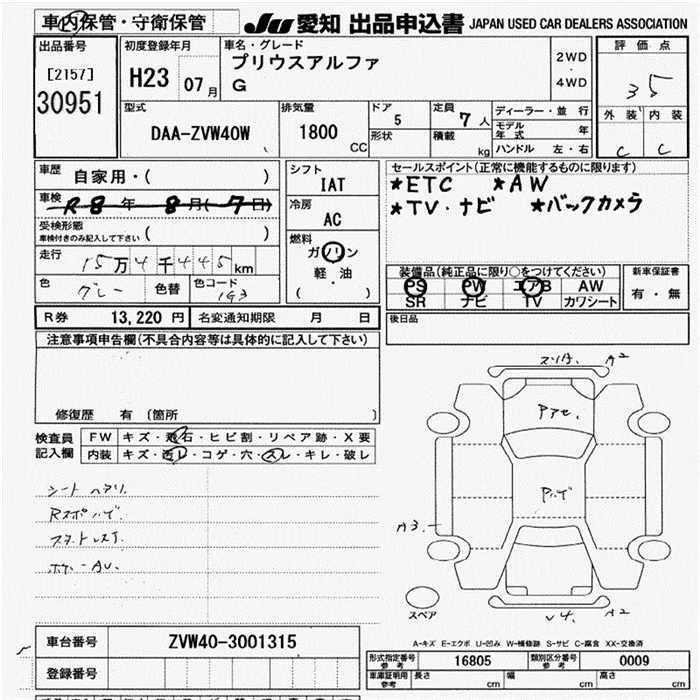 車内保管・守衛保管 JU 愛知 出品申込書 JAPAN USED CAR DEALERS ASSOCIATION
出品番号 初度登録年月 車名・グレード 評価点
[2157] H23 07月 プリウスアルファ 2WD・4WD 35
30951 G
型式 排気量 ドア 定員 ディーラー・並行 外装 内装
DAA-ZVW40W 1800CC 5 7人 モデル年式 年 C C
形状 積載 kg ハンドル 左・右
車歴 自家用・( ) シフト セールスポイント(正常に機能するものに限ります)
IAT ★ETC ★AW
車検 R8年 8月(7日) 冷房 ★TV・ナビ ★バックカメラ
受検形態 AC
車検付きのみ記入して下さい ( ) 燃料
走行 15万4千445km ガソリン 装備品(純正品に限り○をつけてください) 新車保証書
色 グレー 色替 色コード 1G3 軽・油 PS PW エアB AW 有・無
( ) SR ナビ TV カワシート
R券 13,220円 名変通知期限 月 日 後日品
注意事項申告欄(不具合内容等は具体的に記入して下さい)
修復歴 有 〔箇所 〕
検査員 FW キズ・飛石・ヒビ割・リペア跡・X要
記入欄 内装 キズ・汚レ・コゲ・穴・スレ・キレ・破レ
シートヘタリ
A2
A3
スペア
A2
A-キズ E-エクボ U-凹み W-補修跡 S-サビ C-腐食 XX-交換済
車台番号 ZVW40-3001315
形式指定番号 参考 16805 類別区分番号 参考 0009
登録番号 車庫証明用 参考 長さ cm 幅 cm 高さ cm